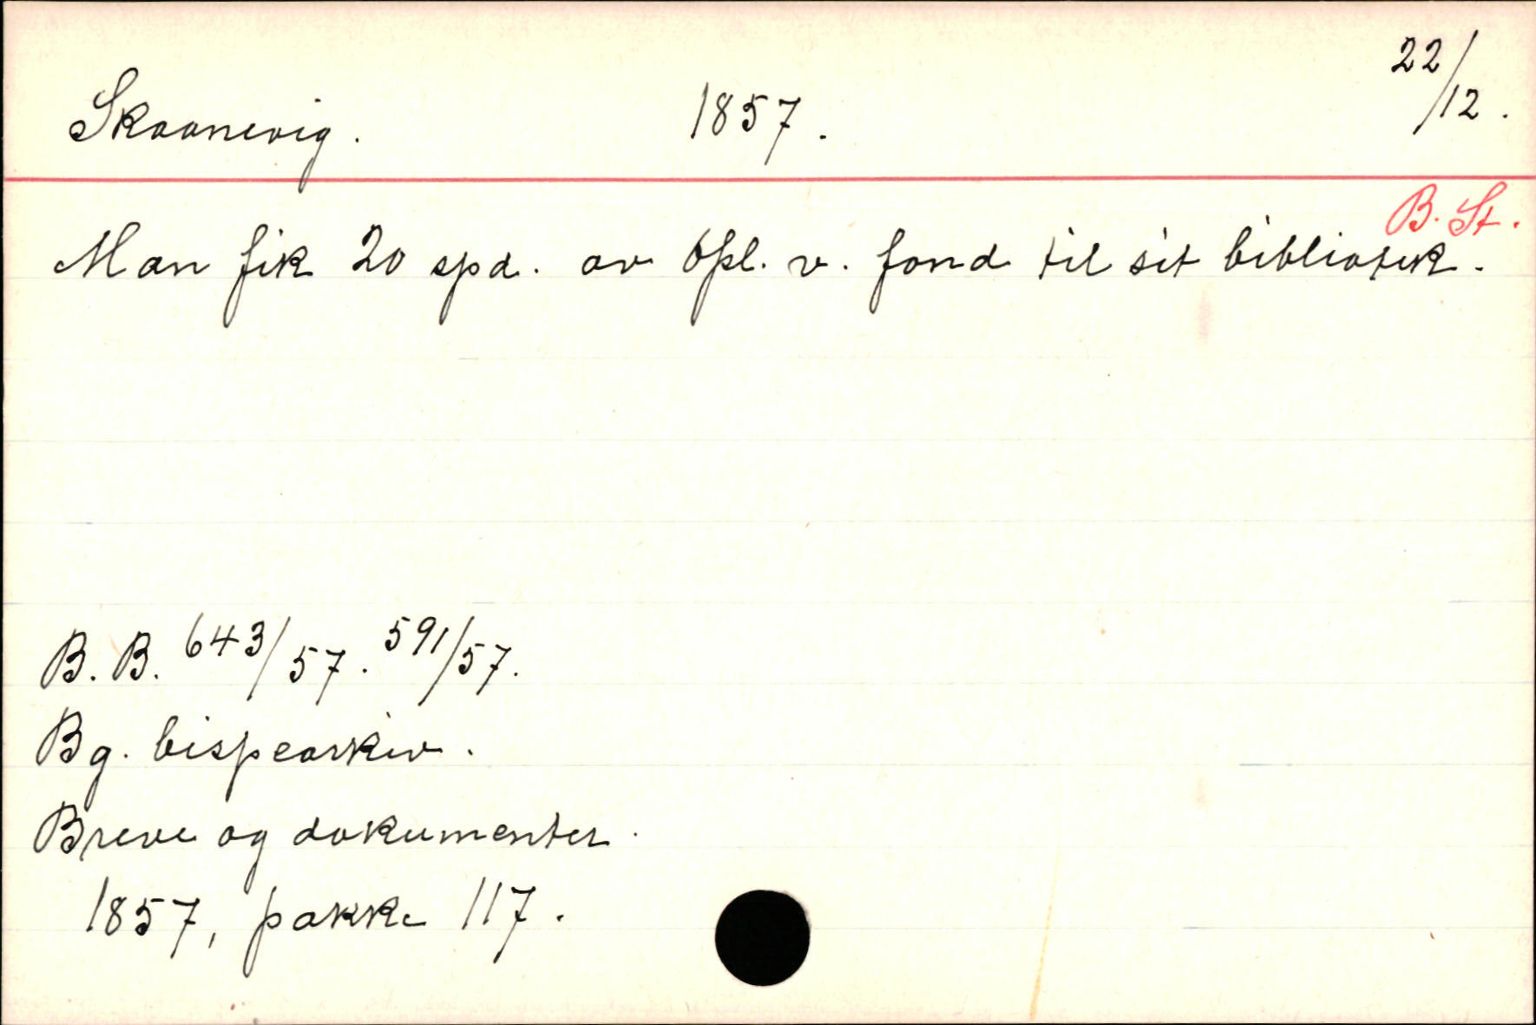 Skaanevig. 1857. 22/12.
B. St.
Man fik 20 spd. av Opl. v. fond til sit bibliotek.
B. B. 643/57. 591/57.
Bg. bispearkiv.
Breve og dokumenter.
1857, pakke 117.